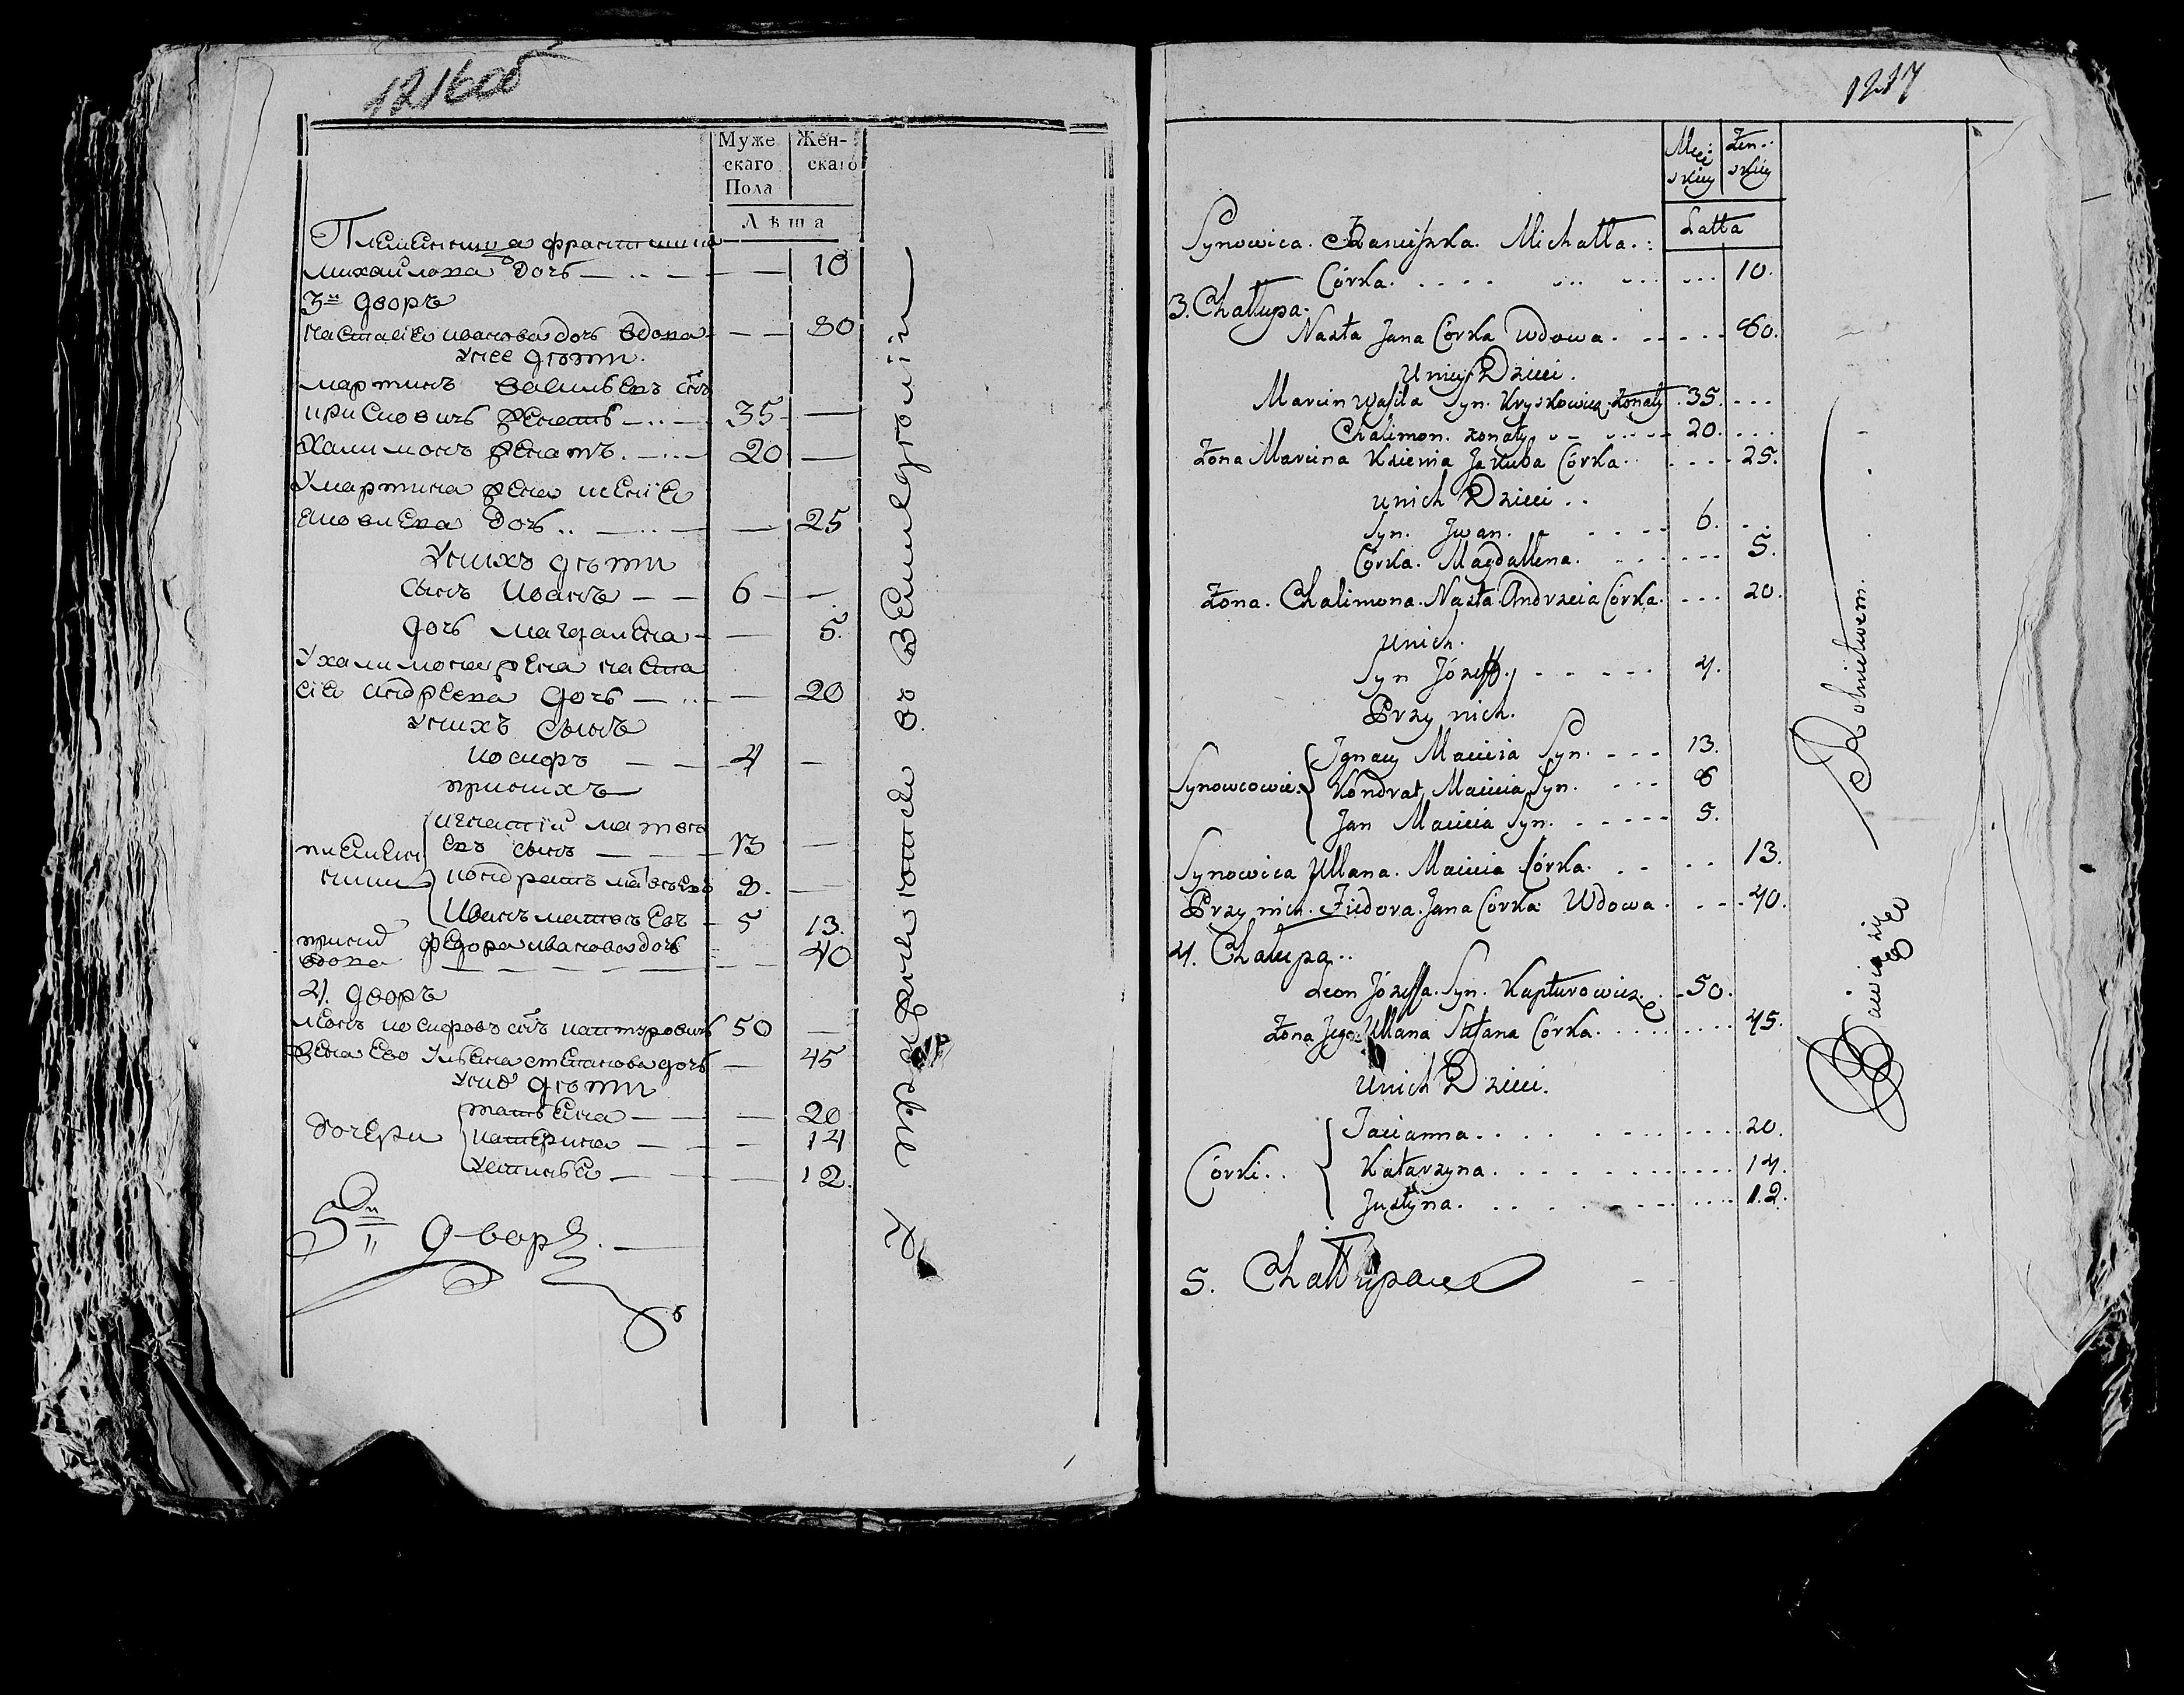 1216об
Муже
скаго
Пола
Жен-
скаго
Лѣта
Племенница францишка
михайлова дочь 10
3й дворъ
настасiя иванова дочь вдова 80
унее дѣти
мартинъ васильевъ сынъ
крисковичь женатъ 35
халимонъ женатъ 20
умартина жена ксенiя
яковлева дочь 25
унихъ дѣти
сынъ иванъ 6
дочь магдалена 5
ухалимона жена наста
сiя андреева дочь 20
унихъ сынъ
иосифъ 4
принихъ
племен
ники
игнатiй матве
евъ сынъ 13
кондратъ матвеевъ 8
иванъ матвеевъ 5 13
приних федора иванова дочь
вдова 40
4. дворъ
леонъ иосифовъ сынъ каптуровичь 50
жена его ульяна степанова дочь 45
уних дѣти
дочери
татьяна 20
катерина 14
устинья 12
5й дворъ
1217
Męz
skiey
Żen
skiey
Latta
Synowica Franciszka Michałła
Córka 10.
3. Chałupa.
Nasta Jana Córka Wdowa 80.
Uniey Dzieci.
Marcin Wasila Syn. Kryskowicz. żonaty 35.
Chalimon. żonaty 20.
Żona Marcina Ksienia Jakuba Córka 25.
unich Dzieci
Syn. Jwan. 6.
Córka. Magdallena. 5.
Żona. Chalimona. Nasta. Andrzeia Córka. 20.
unich.
Syn Józeff. 4.
Przy nich.
Synowcowie.
Jgnacy Macieia Syn. 13.
Kondrat Macieia Syn. 8
Jan Macieia Syn. 5.
Synowica Ullana. Macieia Córka. 13.
Przy nich. Fiedora. Jana Córka Wdowa. 40.
4. Chałupa..
Leon Józeffa. Syn. Kapturowicz. 50.
Żona Jego. Ullana Stefana Córka. 45.
Unich Dzieci.
Córki..
Tacianna. 20.
Katarzyna. 14.
Justyna. 12.
5. Chałłupa
Bawią się
Rolnictwem.